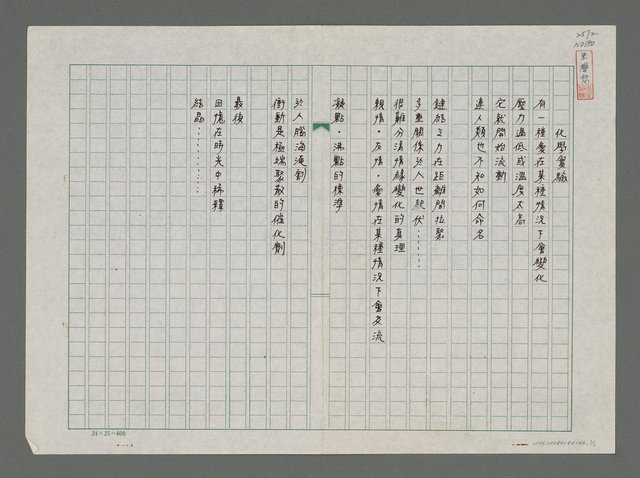 化學實驗
有一種愛在某種情況下會變化
壓力過低或溫度太高
它就開始流動
連人類也不知如何命名
鍵結之力在距離間拉聚
多重關係於人世起伏……
很難分清情緣變化的真理
親情・友情・愛情在某種情況下會交流
凝點・沸點的標準
於人腦海淹割
衝動是極端聚散的催化劑
最後
回憶在時光中稀釋
結晶………
24×25=600
2572